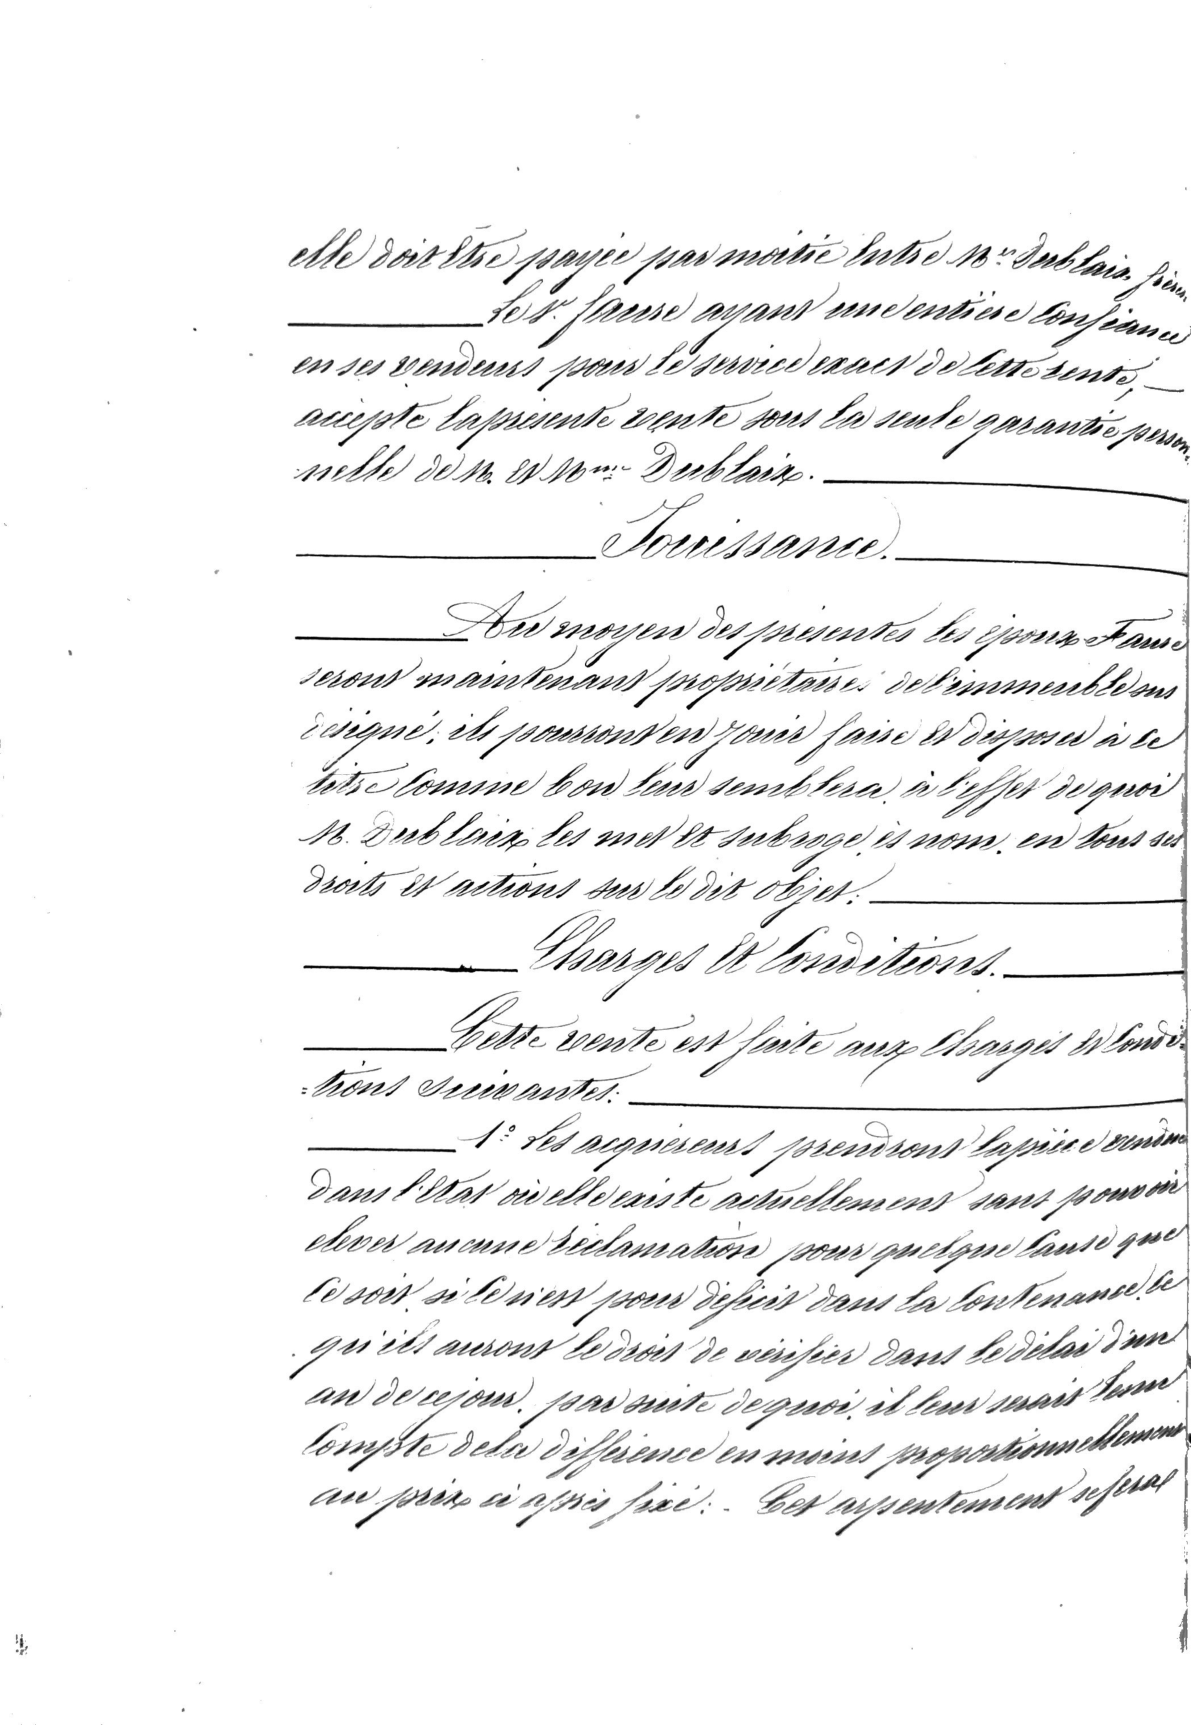 elle doit être payée par moitié entre Mr. Dublaix frères
Le Sr. Faure ayant une entière confiance
en ses vendeurs pour le service exact de cette rente,
accepte la présente vente sous la seule garantie person
:nelle de M. et Mme Dublaix.
Jouissance.
Au moyen des présentes les époux Faure
seront maintenant propriétaires de l'immeuble sus
désigné; ils pourront en jouir faire et disposer à ce
titre comme bon leur semblera, à l'effet de quoi
M. Dublaix les met et subroge, ès nom, en tous ses
droits et actions sur le dit objet:
Charges et Conditions.
Cette vente est faite aux charges et condi=
=tions suivantes:
1º Les acquéreurs prendront la pièce vendue
dans l'état où elle existe actuellement sans pouvoir
élever aucune réclamation pour quelque cause que
ce soit, si ce n'est pour déficit dans la contenance, ce
qu'ils auront le droit de vérifier dans le délai d'un
an de ce jour, par suite de quoi, il leur serait tenu
compte de la différence en moins proportionnellement
au prix ci après fixé: - Cet arpentement se fera